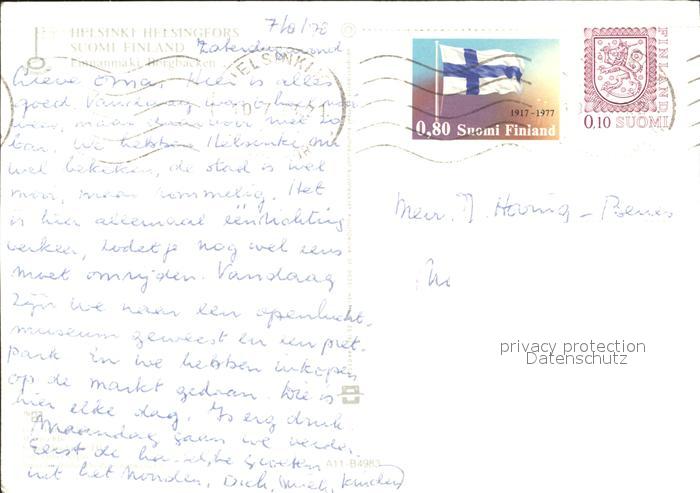 HELSINKI HELSINGFORS
SUOMI FINLAND
7/8/78
Zaterdag avond
Lieve oma, Hier is alles
goed. Vandaag
We hebben Helsinki
wel bekeken, de stad is wel
mooi, maar rommelig. Het
is hier allemaal éénrichting
verkeer, zodat je nog wel eens
moet omrijden. Vandaag
zijn we naar een openlucht-
museum geweest en een pret-
park en we hebben inkopen
op de markt gedaan. Die is
hier elke dag. Is erg druk.
Maandag gaan we verder.
Eerst de hartelijke groeten
uit het Noorden, Dick, kinderen
A11-B4983
HELSINKI
1917-1977
0,80 Suomi Finland
FINLAND
0,10 SUOMI
Mevr. J. Hoving -
privacy protection
Datenschutz